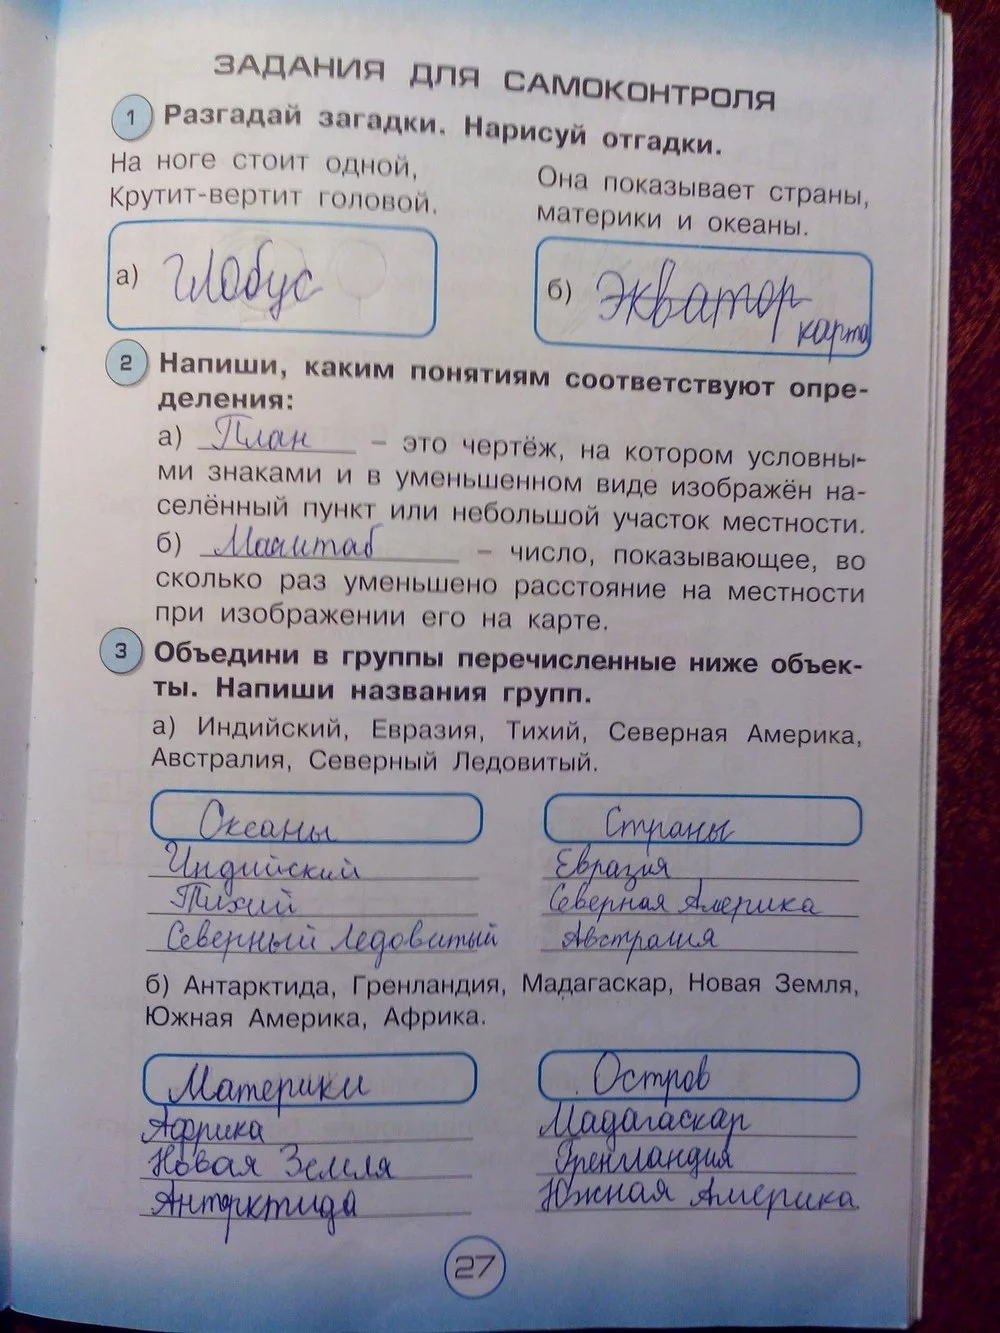 ЗАДАНИЯ ДЛЯ САМОКОНТРОЛЯ
1 Разгадай загадки. Нарисуй отгадки.
На ноге стоит одной,
Крутит-вертит головой.
Она показывает страны,
материки и океаны.
а) Глобус
б) Экватор
карта
2 Напиши, каким понятиям соответствуют опре-
деления:
а) План – это чертёж, на котором условны-
ми знаками и в уменьшенном виде изображён на-
селённый пункт или небольшой участок местности.
б) Масштаб – число, показывающее, во
сколько раз уменьшено расстояние на местности
при изображении его на карте.
3 Объедини в группы перечисленные ниже объек-
ты. Напиши названия групп.
а) Индийский, Евразия, Тихий, Северная Америка,
Австралия, Северный Ледовитый.
Океаны Страны
Индийский Евразия
Тихий Северная Америка
Северный Ледовитый Австралия
б) Антарктида, Гренландия, Мадагаскар, Новая Земля,
Южная Америка, Африка.
Материки Остров
Африка Мадагаскар
Новая Земля Гренландия
Антарктида Южная Америка
27